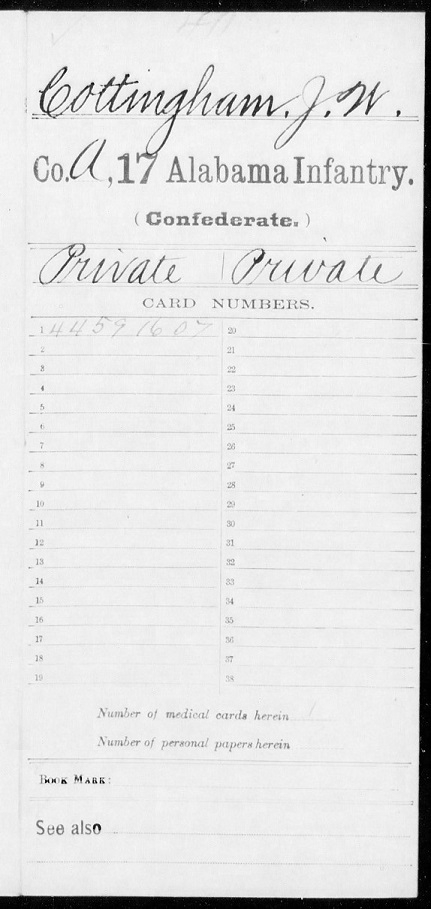 Cottingham, J. W.
Co. A, 17 Alabama Infantry.
(Confederate.)
Private | Private
CARD NUMBERS.
1 44591607 20
2 21
3 22
4 23
5 24
6 25
7 26
8 27
9 28
10 29
11 30
12 31
13 32
14 33
15 34
16 35
17 36
18 37
19 38
Number of medical cards herein 1
Number of personal papers herein
BOOK MARK:
See also